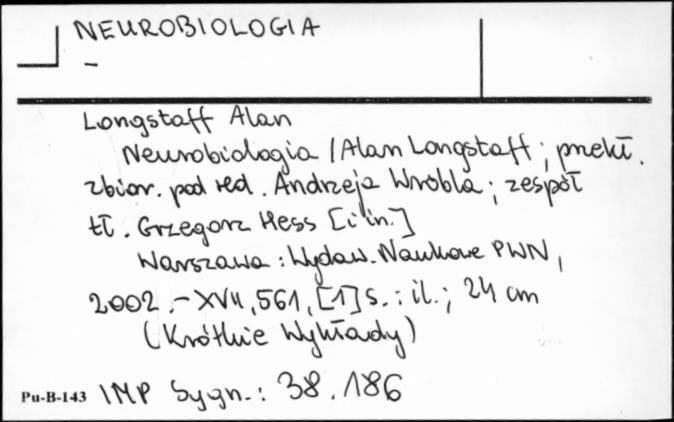 NEUROBIOLOGIA
–
Longstaff Alan
Neurobiologia / Alan Longstaff ; przekł.
zbior. pod red. Andrzeja Wróbla ; zespół
tł. Grzegorz Hess [i in.]
Warszawa : Wydaw. Naukowe PWN,
2002. – XVII, 561, [1] s. : il. ; 24 cm
(Krótkie Wykłady)
Pu-B-143 IMP Sygn. : 38.186